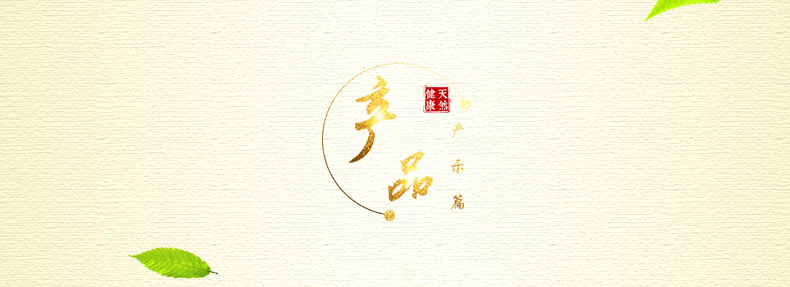 产品
天然
健康
产示篇